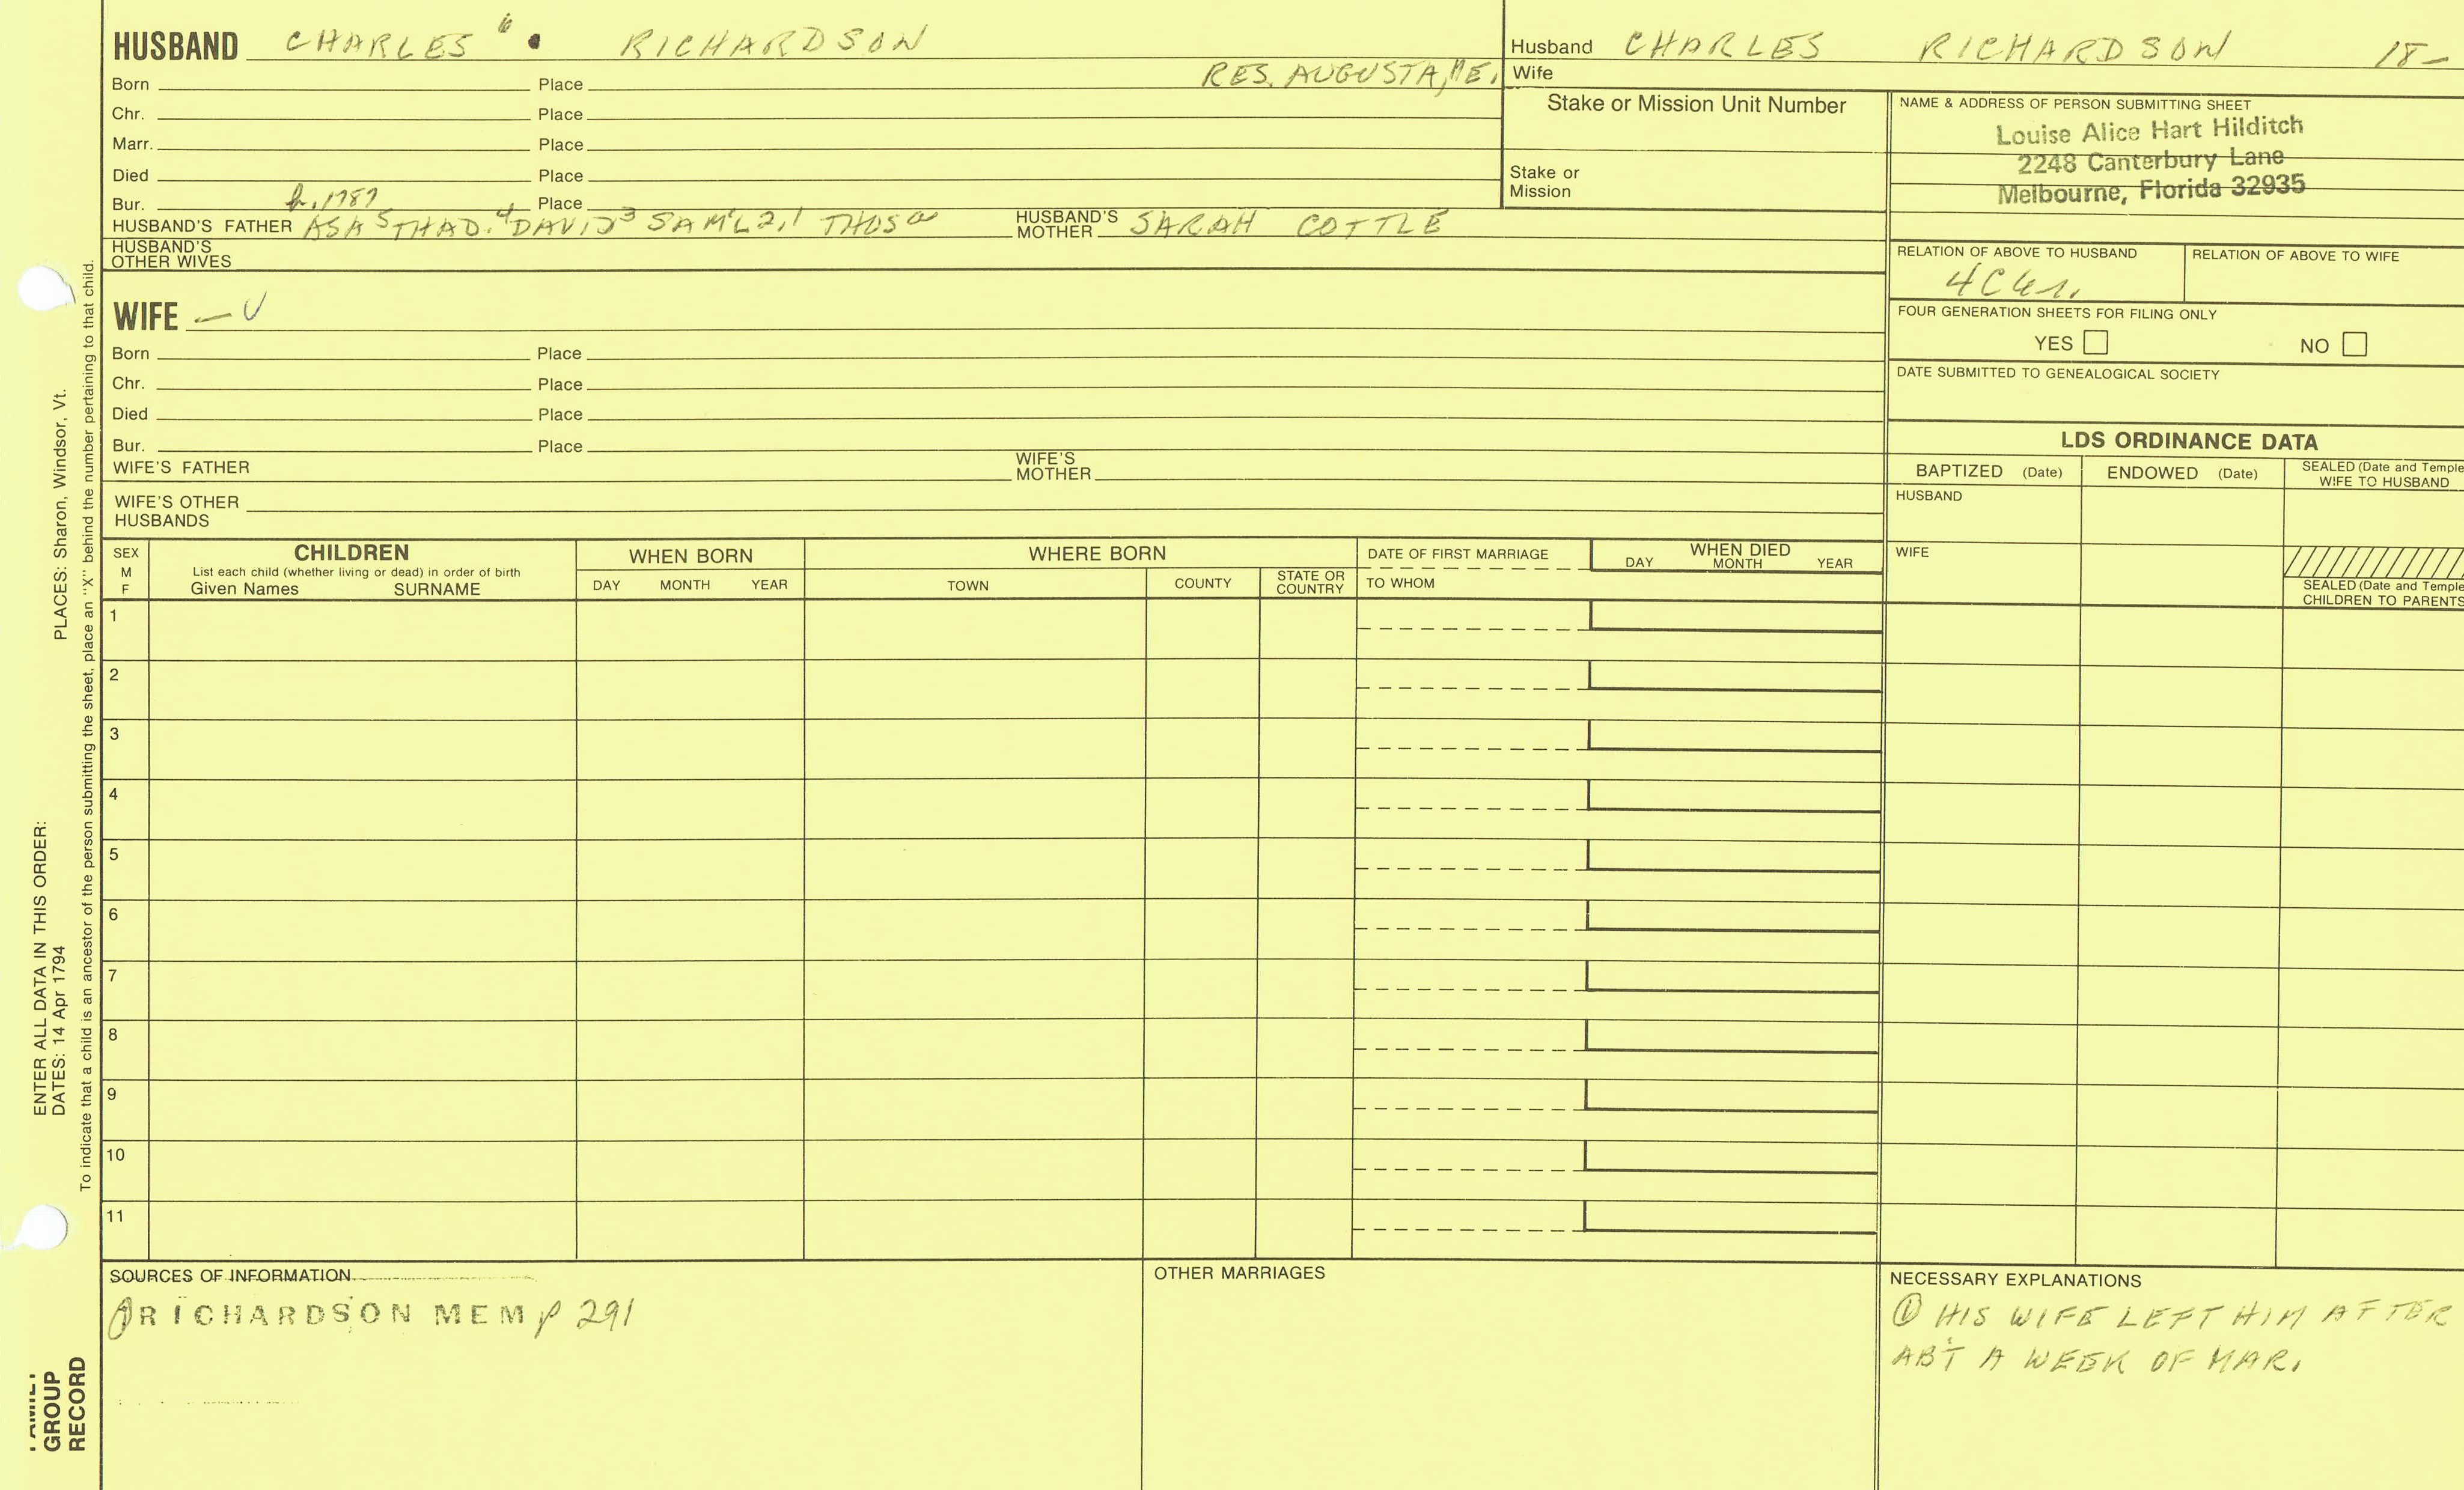 HUSBAND CHARLES RICHARDSON
RES. AUGUSTA, ME.
Born Place
Chr. Place
Marr. Place
Died Place
Bur. Place
HUSBAND'S FATHER ASA 5 THAD. 4 DAVID 3 SAM'L 2,1 THOS
HUSBAND'S MOTHER SARAH COTTLE
HUSBAND'S OTHER WIVES
WIFE —
Born Place
Chr. Place
Died Place
Bur. Place
WIFE'S FATHER
WIFE'S MOTHER
WIFE'S OTHER HUSBANDS
Husband CHARLES RICHARDSON 18-
Wife
Stake or Mission Unit Number
Stake or
Mission
NAME & ADDRESS OF PERSON SUBMITTING SHEET
Louise Alice Hart Hilditch
2248 Canterbury Lane
Melbourne, Florida 32935
RELATION OF ABOVE TO HUSBAND
RELATION OF ABOVE TO WIFE
FOUR GENERATION SHEETS FOR FILING ONLY
YES NO
DATE SUBMITTED TO GENEALOGICAL SOCIETY
LDS ORDINANCE DATA
BAPTIZED (Date) ENDOWED (Date) SEALED (Date and Temple
WIFE TO HUSBAND
HUSBAND
WIFE
SEALED (Date and Temple
CHILDREN TO PARENTS
SEX
M
F
CHILDREN
List each child (whether living or dead) in order of birth
Given Names SURNAME
WHEN BORN
DAY MONTH YEAR
WHERE BORN
TOWN COUNTY STATE OR COUNTRY
DATE OF FIRST MARRIAGE
TO WHOM
WHEN DIED
DAY MONTH YEAR
1
2
3
4
5
6
7
8
9
10
11
SOURCES OF INFORMATION
RICHARDSON MEM p 291
OTHER MARRIAGES
NECESSARY EXPLANATIONS
① HIS WIFE LEFT HIM AFTER
ABT A WEEK OF MAR.
PLACES: Sharon, Windsor, Vt.
ENTER ALL DATA IN THIS ORDER:
DATES: 14 Apr 1794
To indicate that a child is an ancestor of the person submitting the sheet, place an "X" behind the number pertaining to that child.
GROUP
RECORD